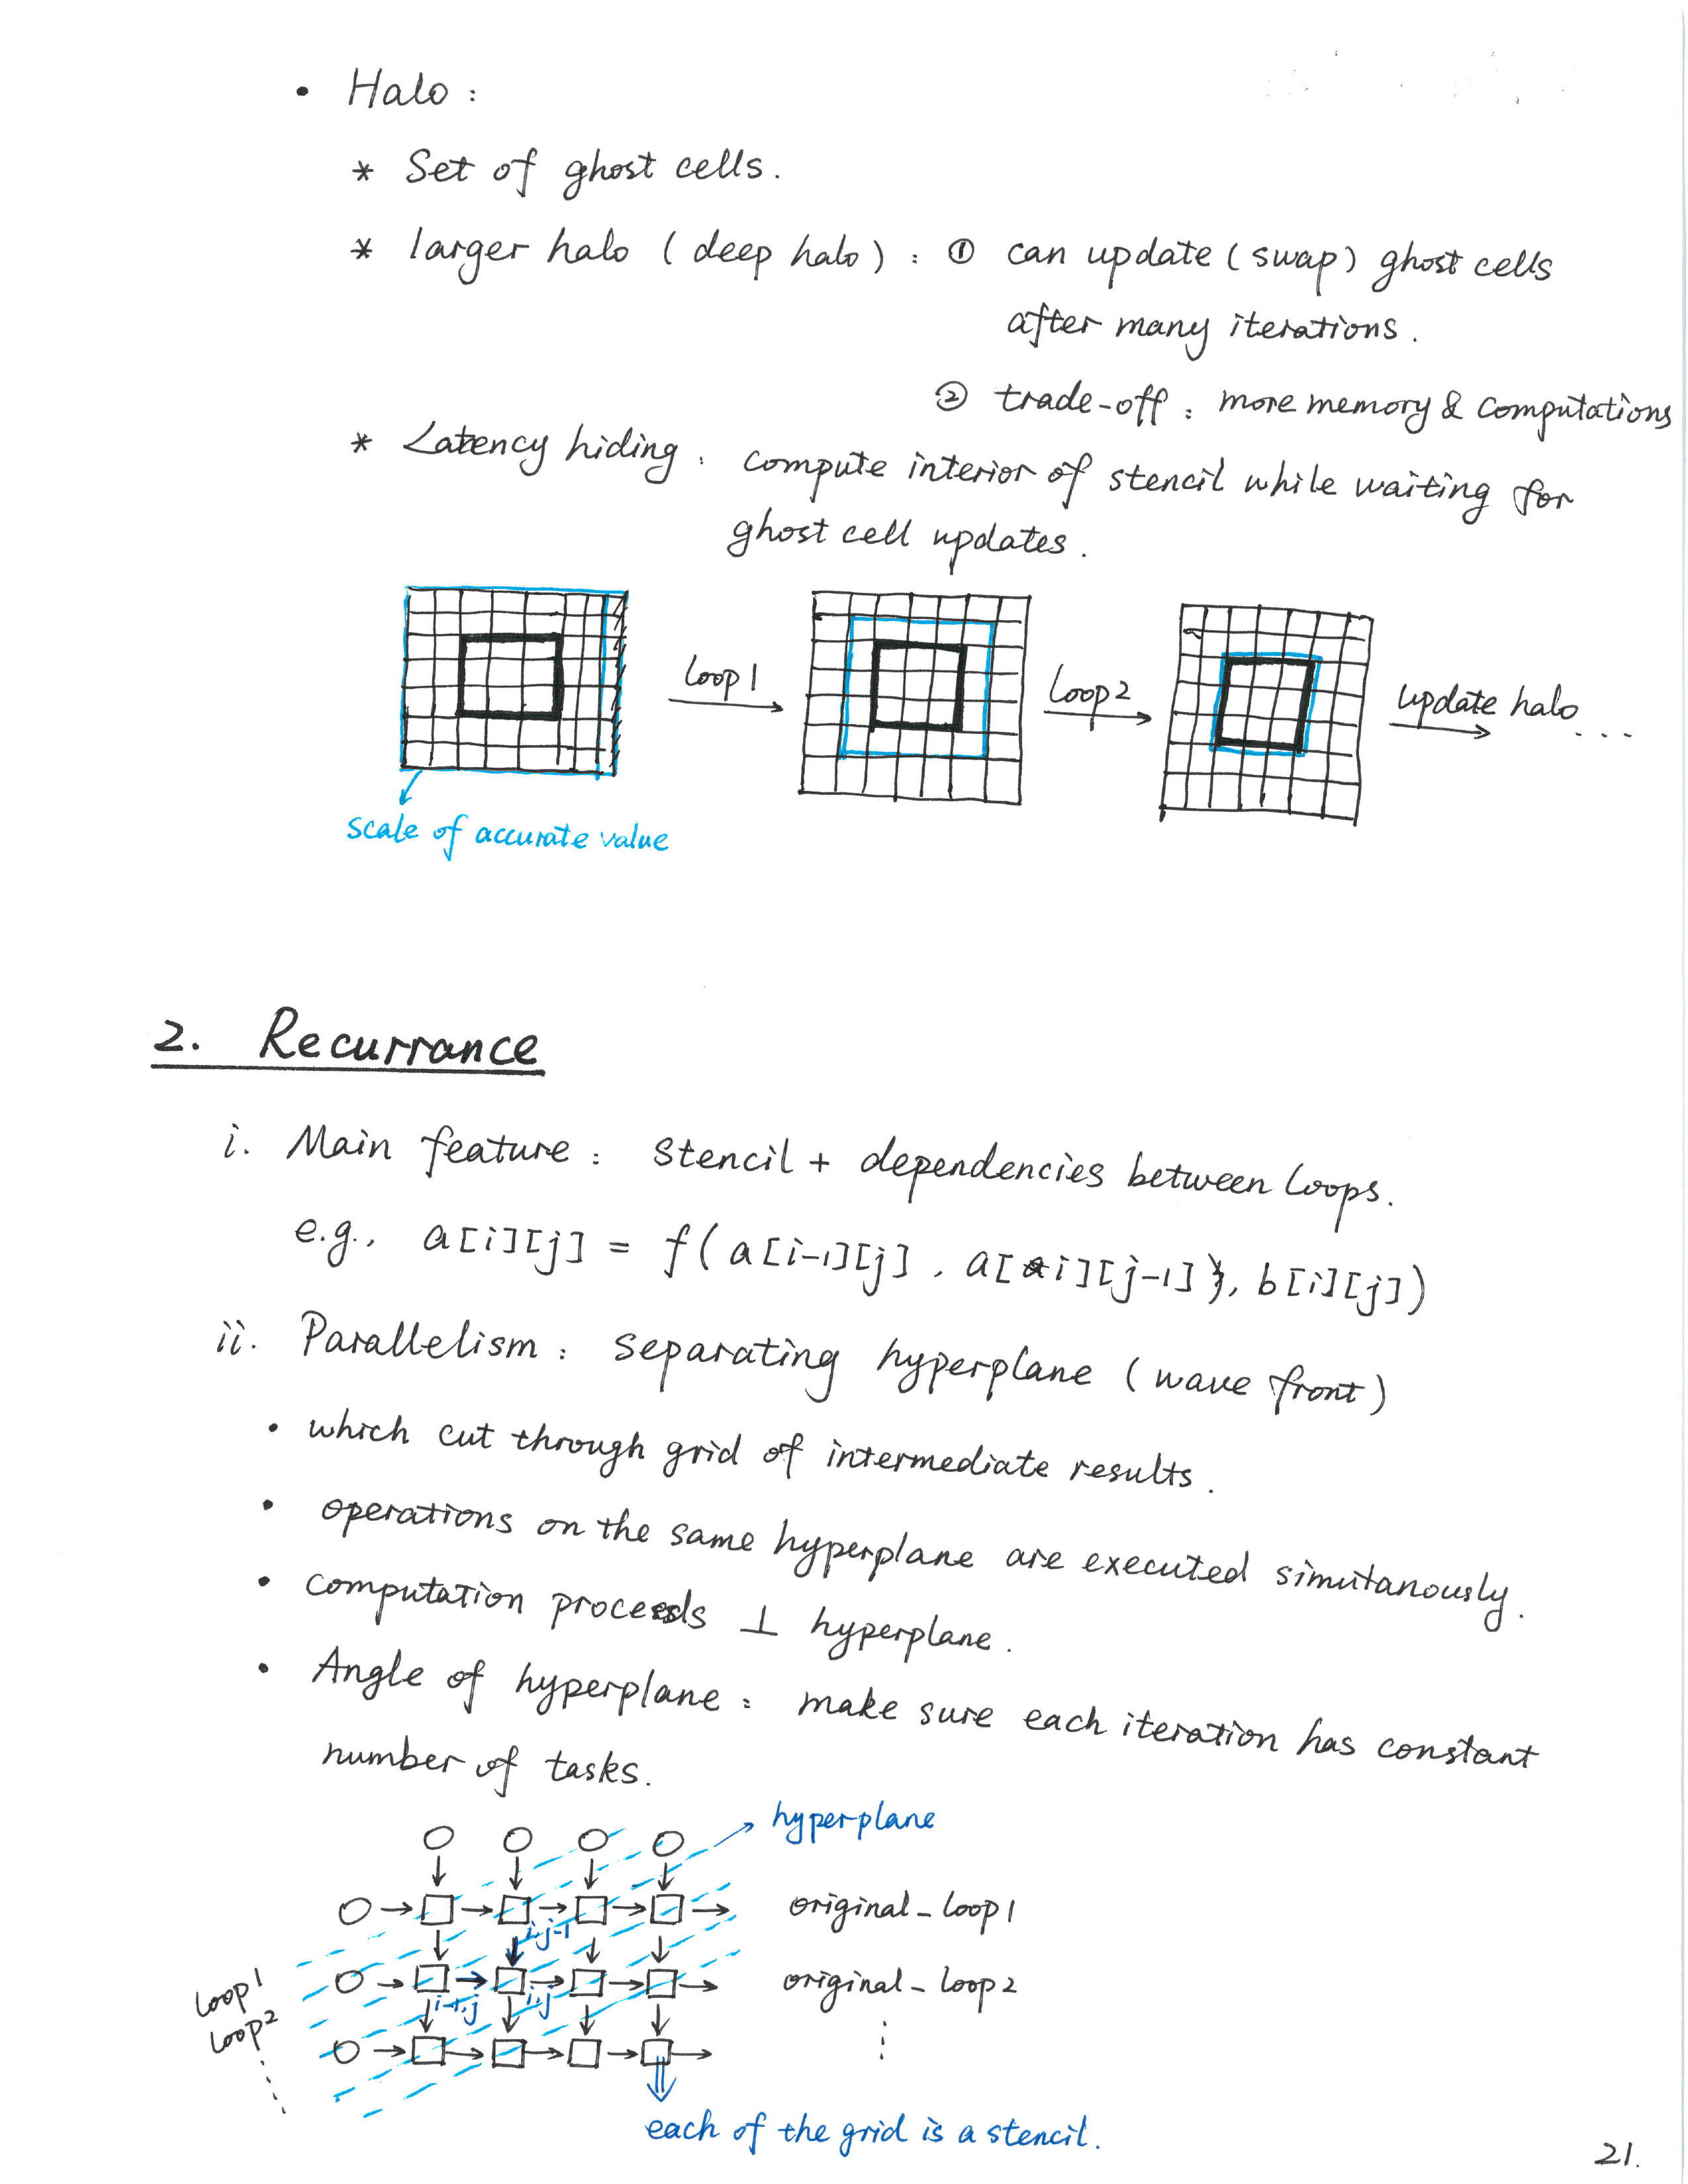 • Halo :
* Set of ghost cells.
* larger halo (deep halo) : ① can update (swap) ghost cells
after many iterations.
② trade-off : more memory & computations
* Latency hiding : compute interior of stencil while waiting for
ghost cell updates.
loop1
loop2
update halo ...
scale of accurate value
2. Recurrance
i. Main feature : Stencil + dependencies between loops.
e.g., a[i][j] = f(a[i-1][j], a[i][j-1], b[i][j])
ii. Parallelism : separating hyperplane (wave front)
• which cut through grid of intermediate results.
• operations on the same hyperplane are executed simutanously.
• computation proceeds ⊥ hyperplane.
• Angle of hyperplane : make sure each iteration has constant
number of tasks.
hyperplane
original_loop1
i,j-1
original_loop2
loop1
i-1,j i,j
loop2
each of the grid is a stencil.
21.